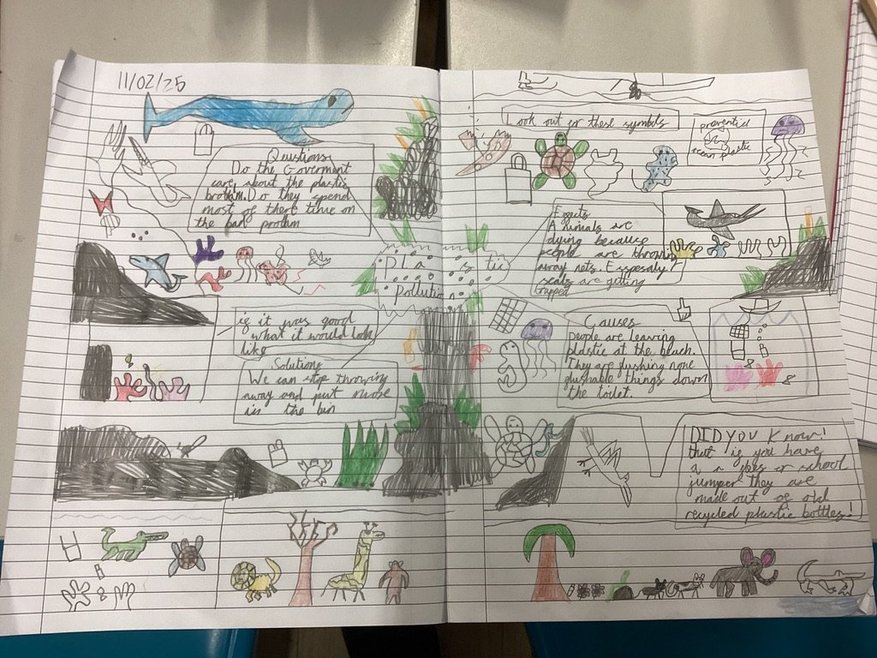 11/02/25
Quistions
Do the Government
care about the plastic
broblam. Do they spend
most of there time on
the bad problam
Plastic
pollution
if it was good
what it would look
like
Solutions
We can stop throwing
away and put more
in the bin
Look out or these symbols
prevented
ocean plastic
Effects
Animals are
dying because
people are throwing
away nets. Esspesaly
seals are getting
trapped
Causes
people are leaving
plastic at the beach.
They are flushing none
flushable things down
the toilet.
DID YOU Know!
that if you have
a or school
jumper they are
made out of old
recycled plastic bottles!